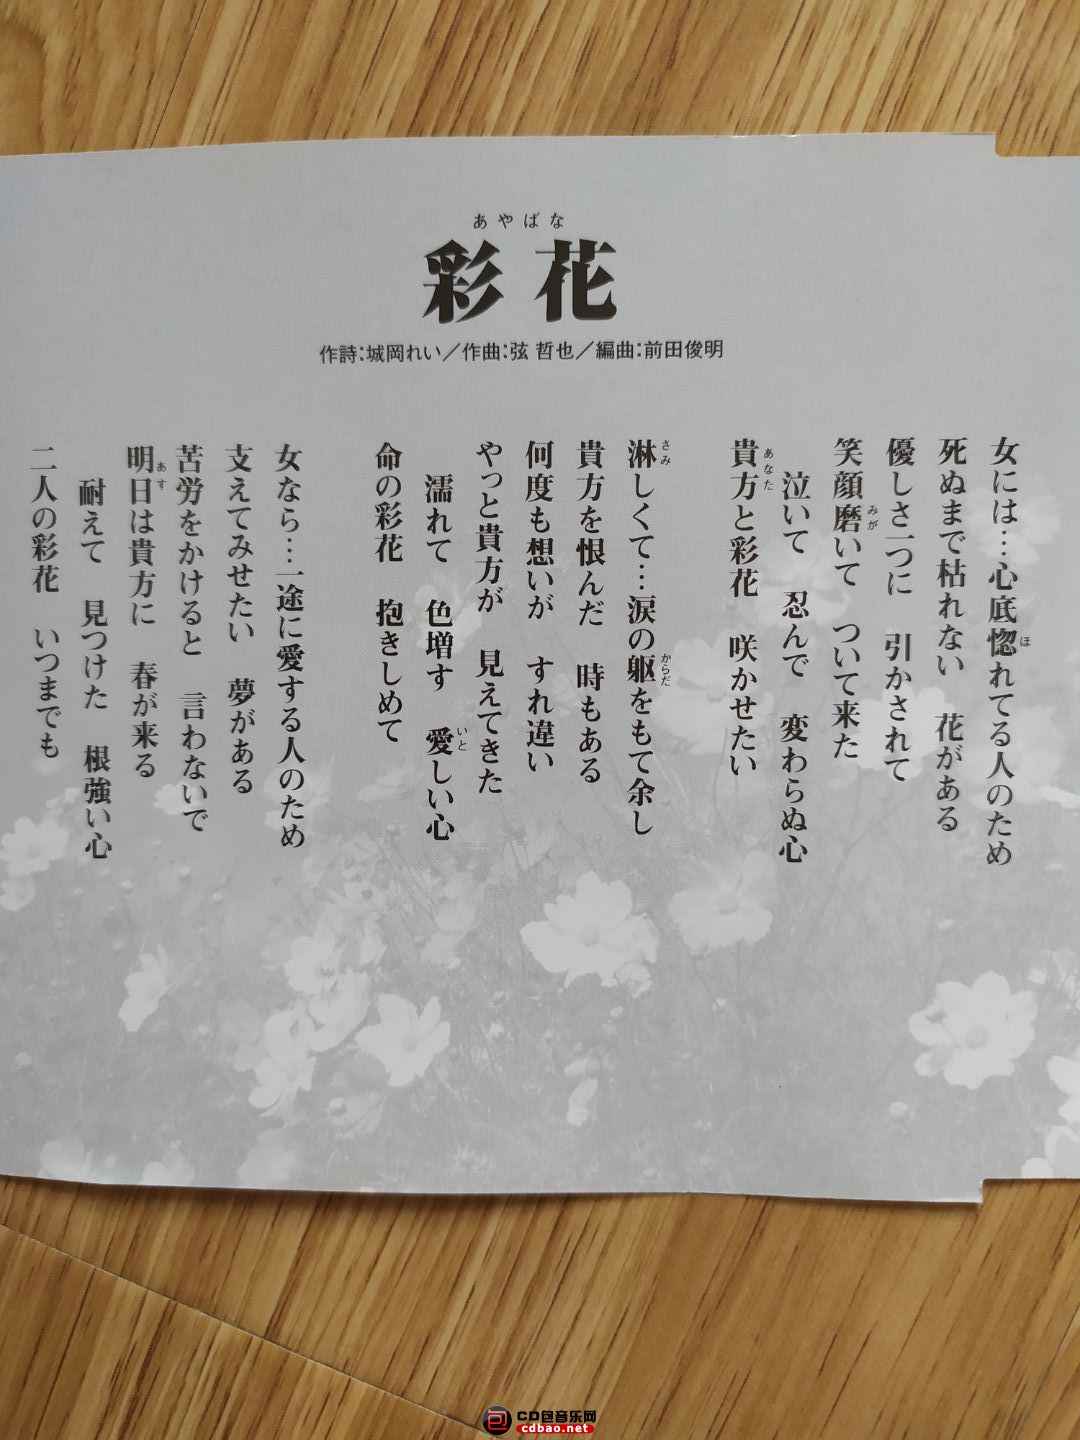 あやばな
彩花
作詩:城岡れい/作曲:弦 哲也/編曲:前田俊明
女には…心底惚れてる人のため
ほ
死ぬまで枯れない 花がある
優しさ一つに 引かされて
笑顔磨いて ついて来た
みが
泣いて 忍んで 変わらぬ心
貴方と彩花 咲かせたい
あなた
淋しくて…涙の躯をもて余し
さみ
からだ
貴方を恨んだ 時もある
何度も想いが すれ違い
やっと貴方が 見えてきた
濡れて 色増す 愛しい心
いと
命の彩花 抱きしめて
女なら…一途に愛する人のため
支えてみせたい 夢がある
苦労をかけると 言わないで
明日は貴方に 春が来る
あす
耐えて 見つけた 根強い心
二人の彩花 いつまでも
CD包音乐网
cdbao.net